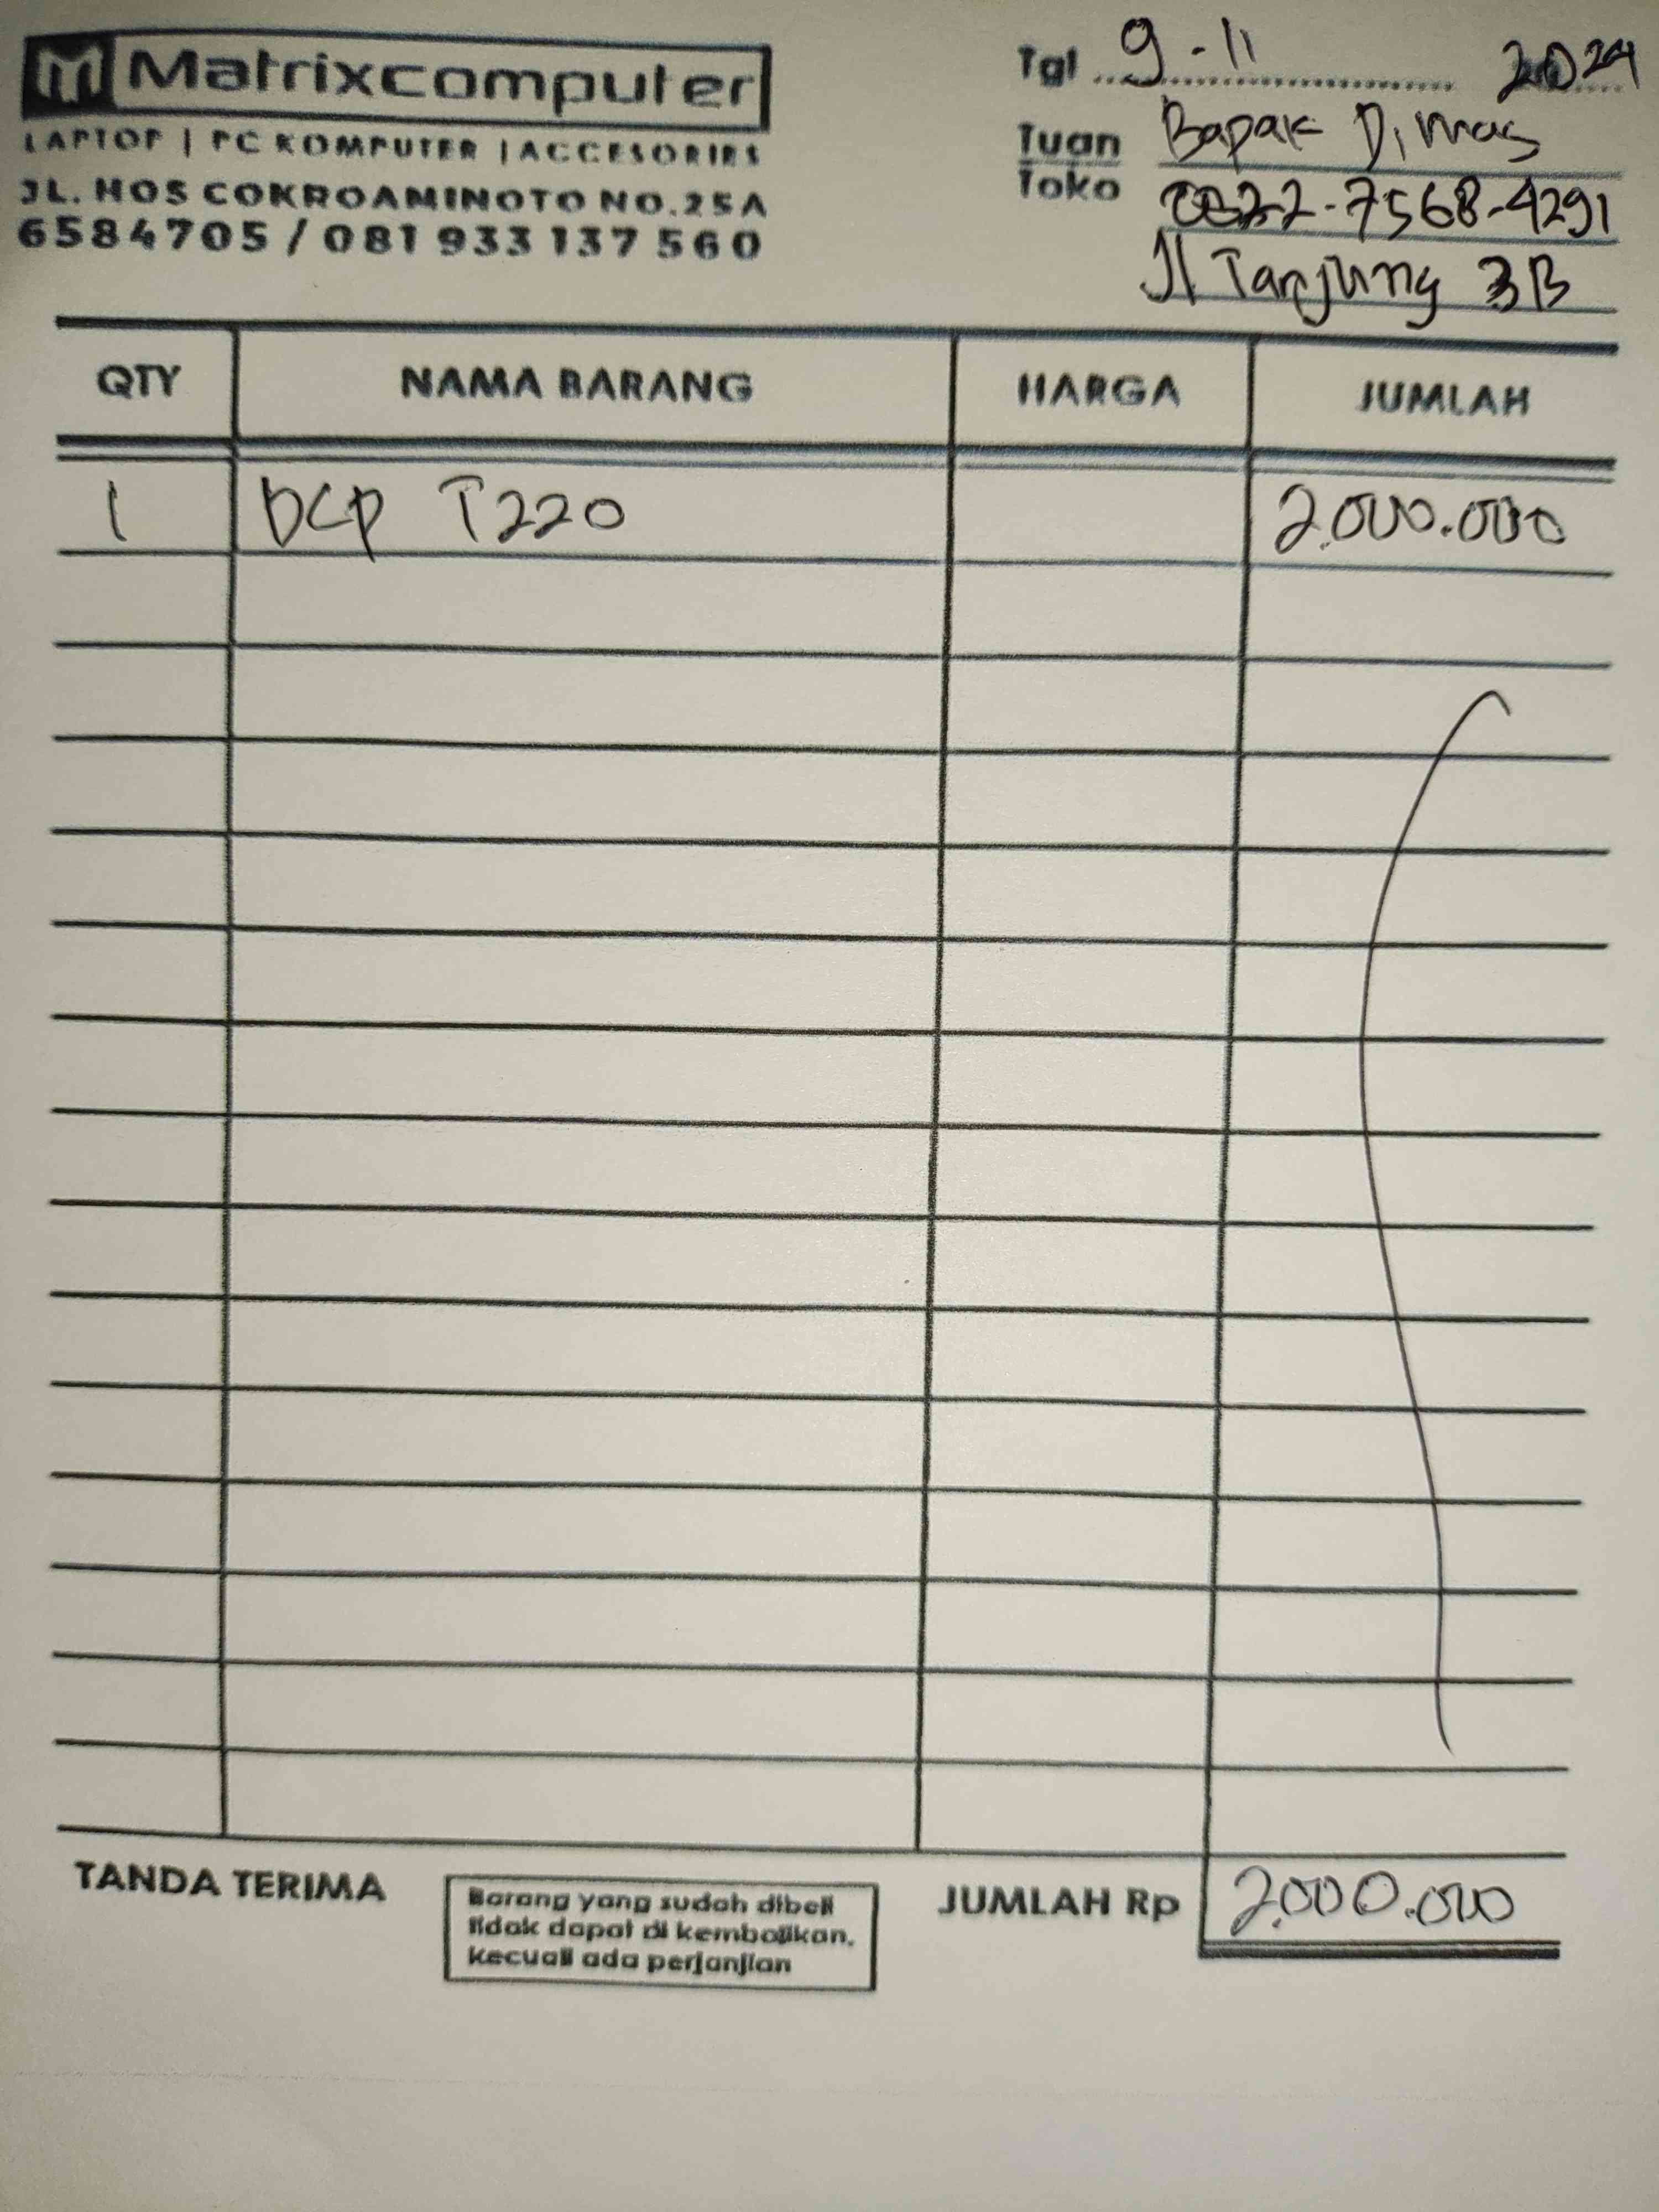 Matrixcomputer
LAPTOP | PC KOMPUTER | ACCESORIES
JL. HOS COKROAMINOTO NO.25A
6584705 / 081 933 137 560
Tgl 9-11 2024
Tuan Bapak Dimas
Toko 0822-7568-4291
Jl Tanjung 3B
QTY NAMA BARANG HARGA JUMLAH
1 DCP T220 2.000.000
TANDA TERIMA
Barang yang sudah dibeli
tidak dapat di kembalikan.
kecuali ada perjanjian
JUMLAH Rp 2.000.000